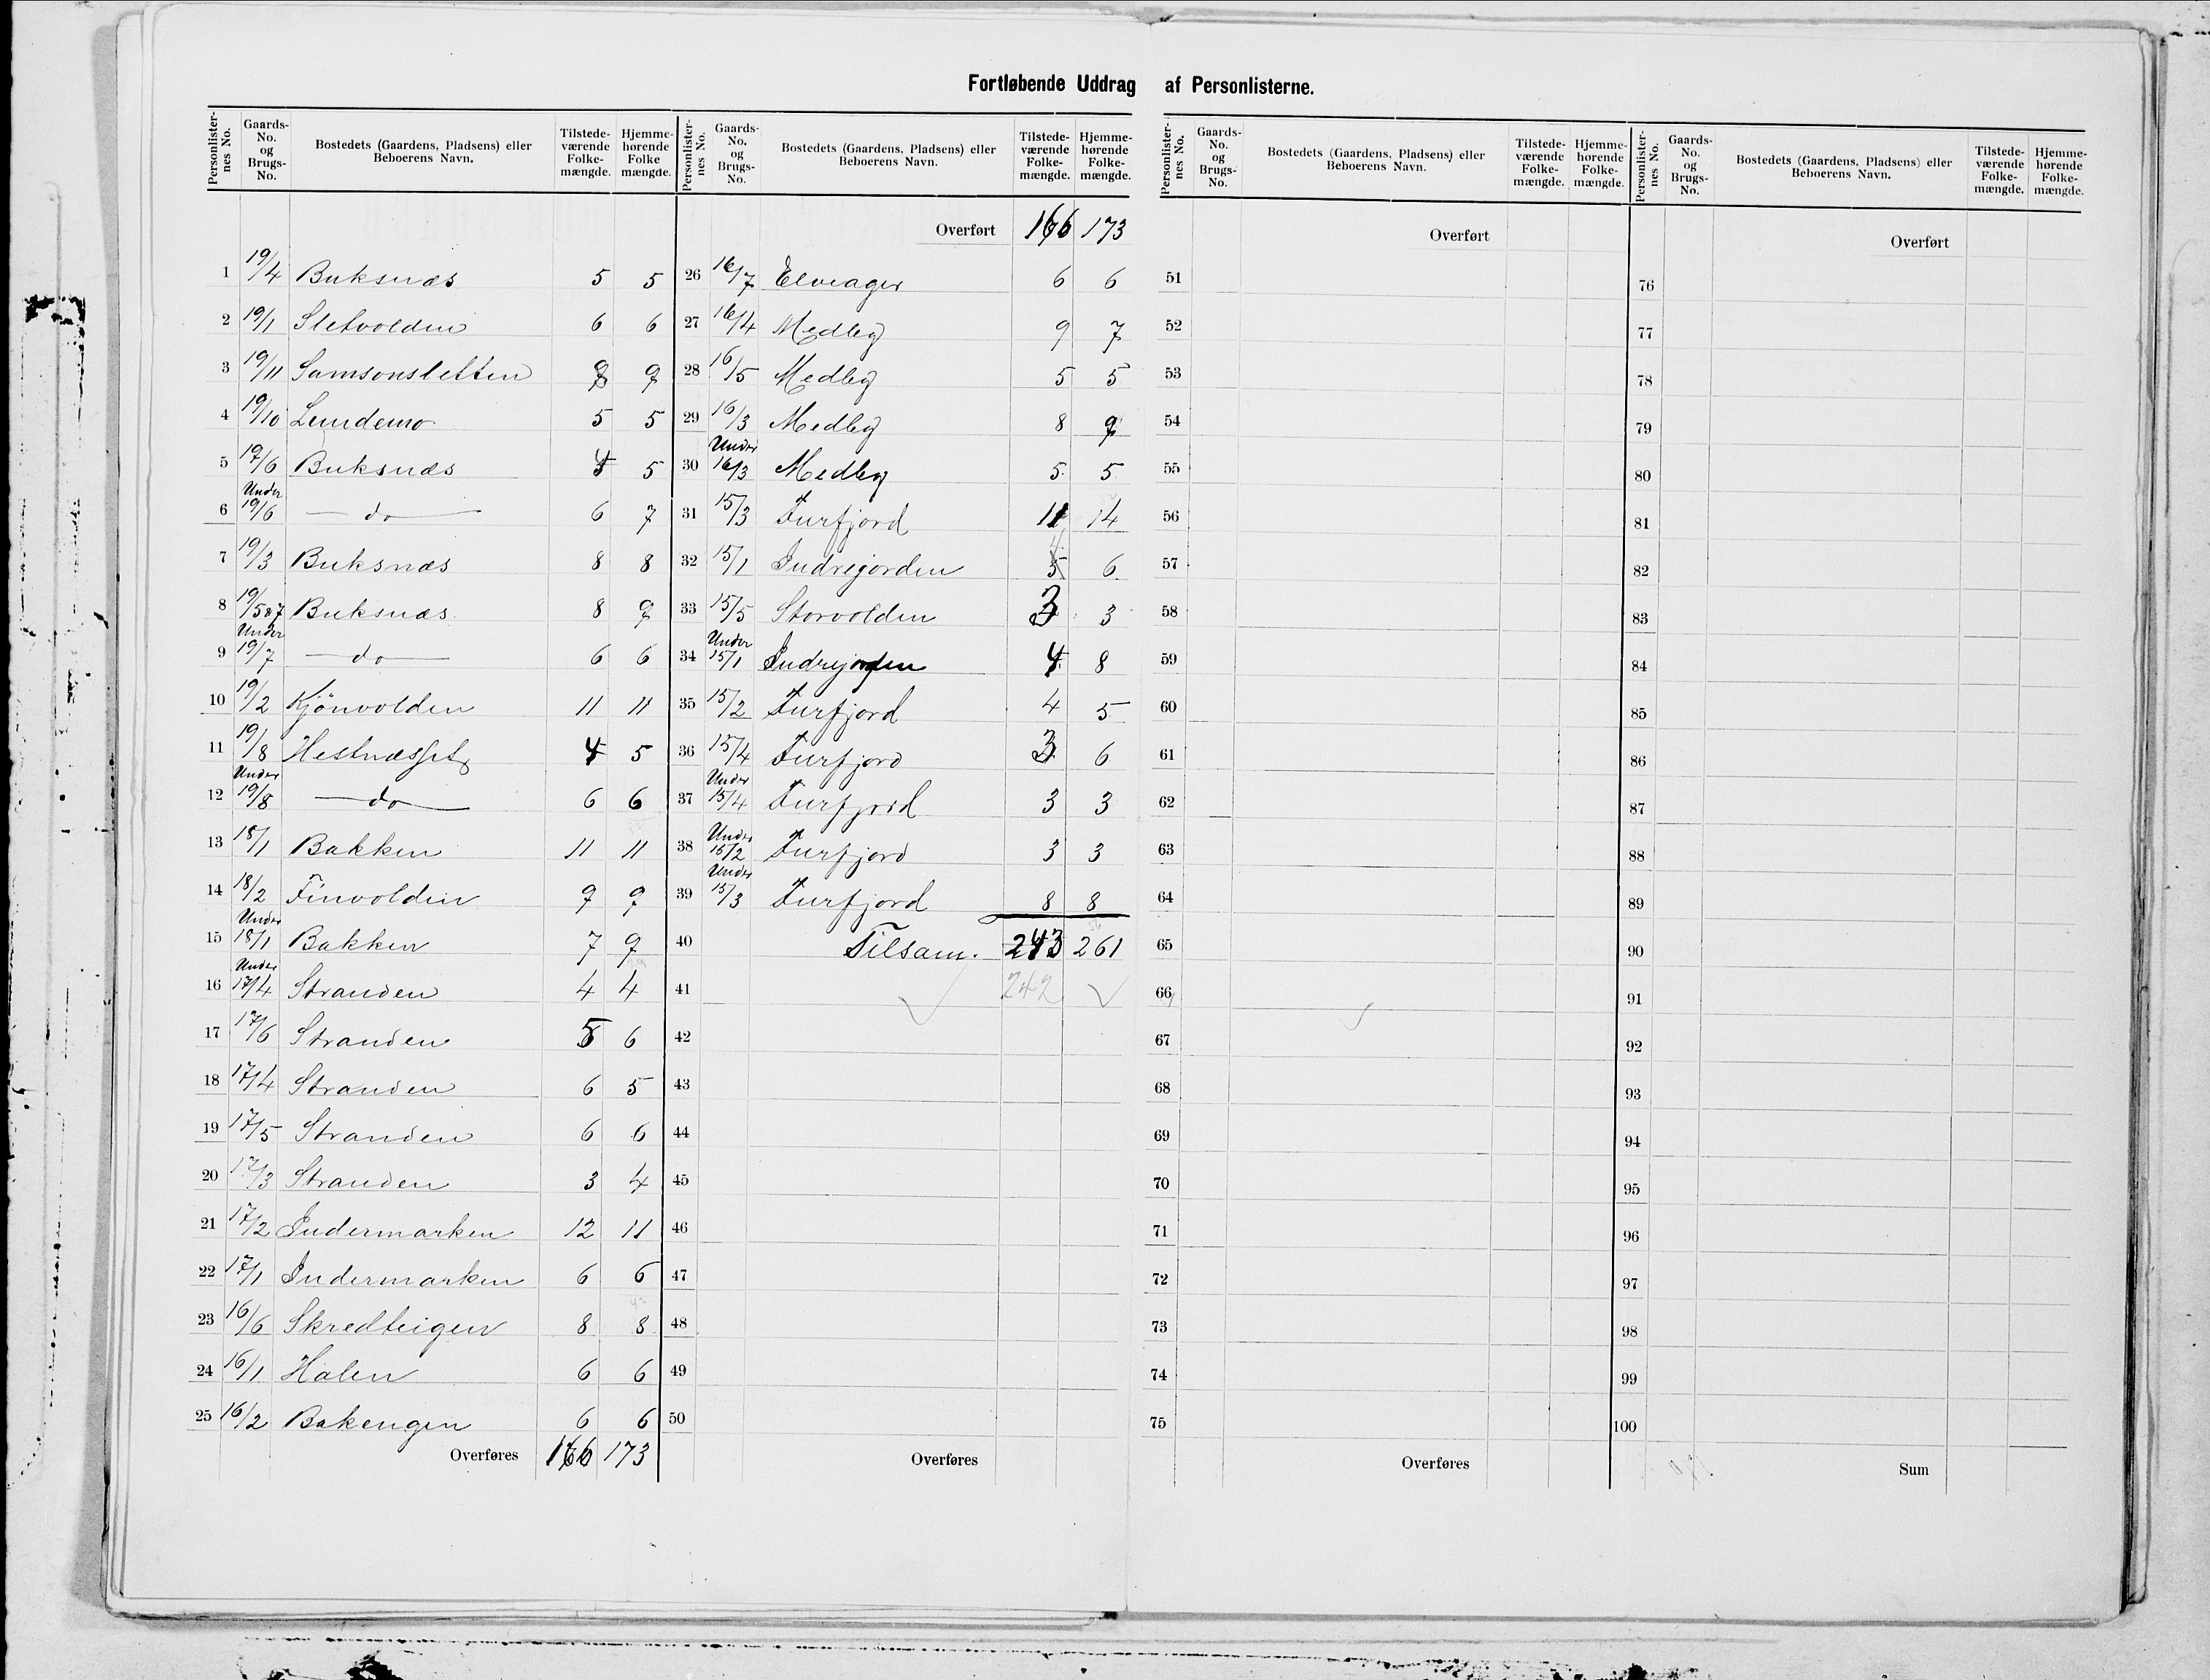 Fortløbende Uddrag af Personlisterne.
Personlister-nes No. Gaards-No. og Brugs-No. Bostedets (Gaardens, Pladsens) eller Beboerens Navn. Tilstede-værende Folke-mængde. Hjemme-hørende Folke mængde.
1 19/4 Buksnæs 5 5
2 19/1 Sletvolden 6 6
3 19/11 Samsonsletten 8 9
4 19/10 Lundemo 5 5
5 19/6 Buksnæs 4 5
6 Under 19/6 do 6 7
7 19/3 Buksnæs 8 8
8 19/5&7 Buksnæs 8 9
9 Under 19/7 do 6 6
10 19/2 Kjönvolden 11 11
11 19/8 Hestnæsset 4 5
12 Under 19/8 do 6 6
13 18/1 Bakken 11 11
14 18/2 Finvolden 9 9
15 Under 18/1 Bakken 7 9
16 Under 17/4 Stranden 4 4
17 17/6 Stranden 5 6
18 17/4 Stranden 6 5
19 17/5 Stranden 6 6
20 17/3 Stranden 3 4
21 17/2 Indermarken 12 11
22 17/1 Indermarken 6 6
23 16/6 Skredteigen 8 8
24 16/1 Halen 6 6
25 16/2 Bakengen 6 6
Overføres 166 173
Personlister-nes No. Gaards-No. og Brugs-No. Bostedets (Gaardens, Pladsens) eller Beboerens Navn. Tilstede-værende Folke-mængde. Hjemme-hørende Folke-mængde.
Overført 166 173
26 16/7 Elveager 6 6
27 16/4 Medby 9 7
28 16/5 Medby 5 5
29 16/3 Medby 8 9
30 Under 16/3 Medby 5 5
31 15/3 Furfjord 11 14
32 15/1 Indrejorden 5 6
33 15/5 Storvolden 3 3
34 Under 15/1 Indrejorden 4 8
35 15/2 Furfjord 4 5
36 15/4 Furfjord 3 6
37 Under 15/4 Furfjord 3 3
38 Under 15/2 Furfjord 3 3
39 Under 15/3 Furfjord 8 8
40 Tilsam. 243 261
41 242
42
43
44
45
46
47
48
49
50
Overføres
Personlister-nes No. Gaards-No. og Brugs-No. Bostedets (Gaardens, Pladsens) eller Beboerens Navn. Tilstede-værende Folke-mængde. Hjemme-hørende Folke-mængde.
Overført
51
52
53
54
55
56
57
58
59
60
61
62
63
64
65
66
67
68
69
70
71
72
73
74
75
Overføres
Personlister-nes No. Gaards-No. og Brugs-No. Bostedets (Gaardens, Pladsens) eller Beboerens Navn. Tilstede-værende Folke-mængde. Hjemme-hørende Folke-mængde.
Overført
76
77
78
79
80
81
82
83
84
85
86
87
88
89
90
91
92
93
94
95
96
97
98
99
100
Sum